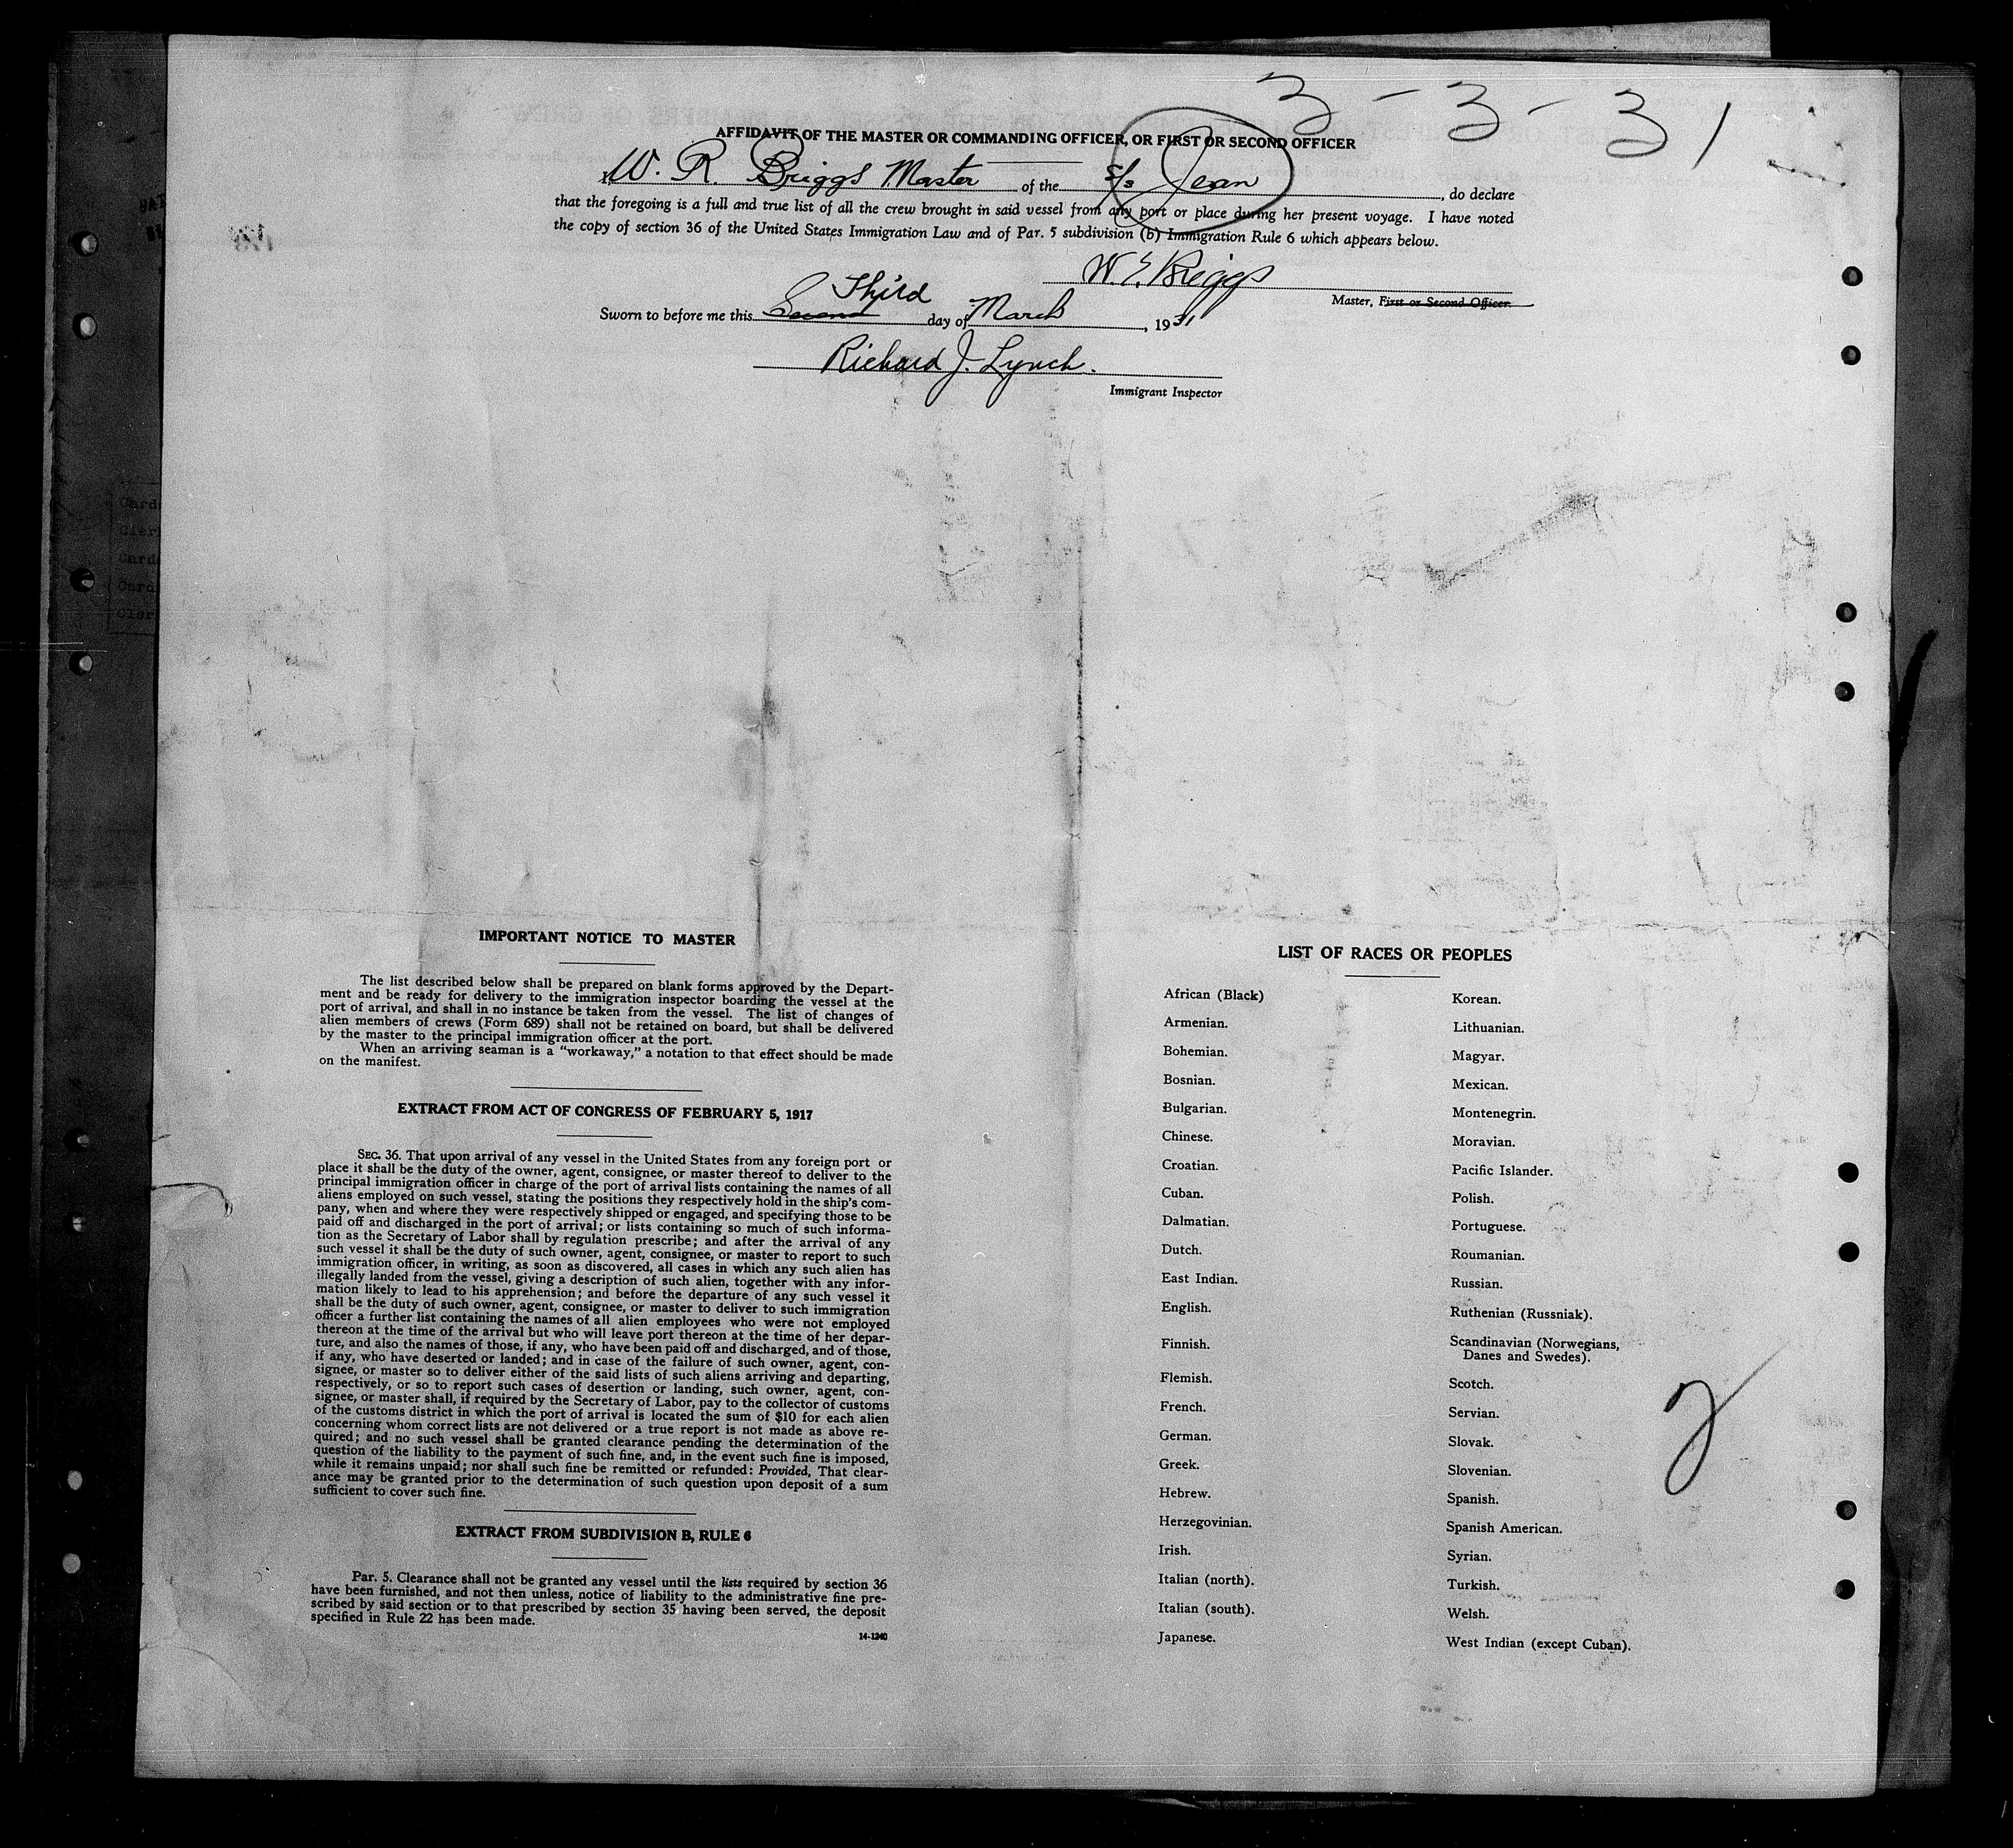 3 - 3 - 31
AFFIDAVIT OF THE MASTER OR COMMANDING OFFICER, OR FIRST OR SECOND OFFICER
I, W. R. Briggs Master of the S/s Jean, do declare
that the foregoing is a full and true list of all the crew brought in said vessel from any port or place during her present voyage. I have noted
the copy of section 36 of the United States Immigration Law and of Par. 5 subdivision (b) Immigration Rule 6 which appears below.
W. E. Briggs
Master, First or Second Officer.
Third
Sworn to before me this Second day of March, 1931
Richard J. Lynch.
Immigrant Inspector
IMPORTANT NOTICE TO MASTER
The list described below shall be prepared on blank forms approved by the Depart-
ment and be ready for delivery to the immigration inspector boarding the vessel at the
port of arrival, and shall in no instance be taken from the vessel. The list of changes of
alien members of crews (Form 689) shall not be retained on board, but shall be delivered
by the master to the principal immigration officer at the port.
When an arriving seaman is a "workaway," a notation to that effect should be made
on the manifest.
EXTRACT FROM ACT OF CONGRESS OF FEBRUARY 5, 1917
SEC. 36. That upon arrival of any vessel in the United States from any foreign port or
place it shall be the duty of the owner, agent, consignee, or master thereof to deliver to the
principal immigration officer in charge of the port of arrival lists containing the names of all
aliens employed on such vessel, stating the positions they respectively hold in the ship's com-
pany, when and where they were respectively shipped or engaged, and specifying those to be
paid off and discharged in the port of arrival; or lists containing so much of such informa-
tion as the Secretary of Labor shall by regulation prescribe; and after the arrival of any
such vessel it shall be the duty of such owner, agent, consignee, or master to report to such
immigration officer, in writing, as soon as discovered, all cases in which any such alien has
illegally landed from the vessel, giving a description of such alien, together with any infor-
mation likely to lead to his apprehension; and before the departure of any such vessel it
shall be the duty of such owner, agent, consignee, or master to deliver to such immigration
officer a further list containing the names of all alien employees who were not employed
thereon at the time of the arrival but who will leave port thereon at the time of her depar-
ture, and also the names of those, if any, who have been paid off and discharged, and of those,
if any, who have deserted or landed; and in case of the failure of such owner, agent, con-
signee, or master so to deliver either of the said lists of such aliens arriving and departing,
respectively, or so to report such cases of desertion or landing, such owner, agent, con-
signee, or master shall, if required by the Secretary of Labor, pay to the collector of customs
of the customs district in which the port of arrival is located the sum of $10 for each alien
concerning whom correct lists are not delivered or a true report is not made as above re-
quired; and no such vessel shall be granted clearance pending the determination of the
question of the liability to the payment of such fine, and, in the event such fine is imposed,
while it remains unpaid; nor shall such fine be remitted or refunded: Provided, That clear-
ance may be granted prior to the determination of such question upon deposit of a sum
sufficient to cover such fine.
EXTRACT FROM SUBDIVISION B, RULE 6
Par. 5. Clearance shall not be granted any vessel until the lists required by section 36
have been furnished, and not then unless, notice of liability to the administrative fine pre-
scribed by said section or to that prescribed by section 35 having been served, the deposit
specified in Rule 22 has been made.
14-1240
LIST OF RACES OR PEOPLES
African (Black)
Armenian.
Bohemian.
Bosnian.
Bulgarian.
Chinese.
Croatian.
Cuban.
Dalmatian.
Dutch.
East Indian.
English.
Finnish.
Flemish.
French.
German.
Greek.
Hebrew.
Herzegovinian.
Irish.
Italian (north).
Italian (south).
Japanese.
Korean.
Lithuanian.
Magyar.
Mexican.
Montenegrin.
Moravian.
Pacific Islander.
Polish.
Portuguese.
Roumanian.
Russian.
Ruthenian (Russniak).
Scandinavian (Norwegians,
Danes and Swedes).
Scotch.
Servian.
Slovak.
Slovenian.
Spanish.
Spanish American.
Syrian.
Turkish.
Welsh.
West Indian (except Cuban).